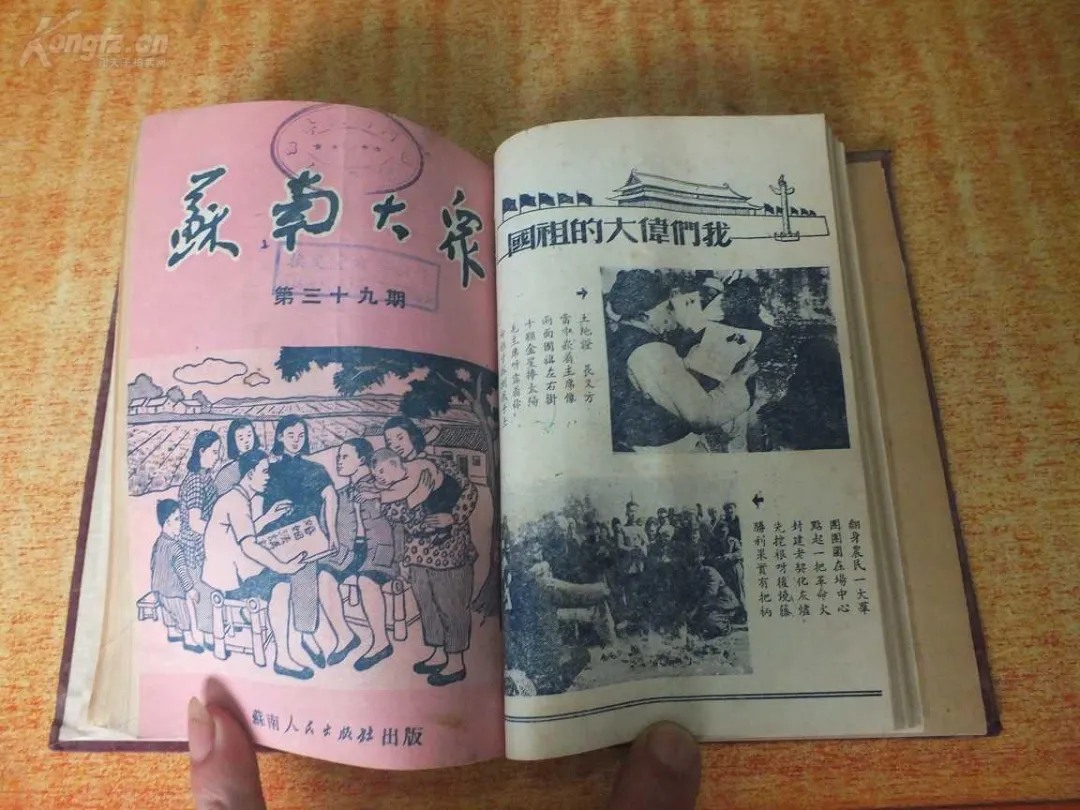 Kongfz.cn
蘇南大眾
第三十九期
婚姻法
蘇南人民出版社出版
我們偉大的祖國
土地證 長又方
當中嵌着主席像
兩面國旗左右衛
十顆金星捧太陽
翻身農民一大羣
團團圍在場中心
點起一把革命火
封建老契化灰燼
先挖根呀後燒藤
勝利果實有把柄